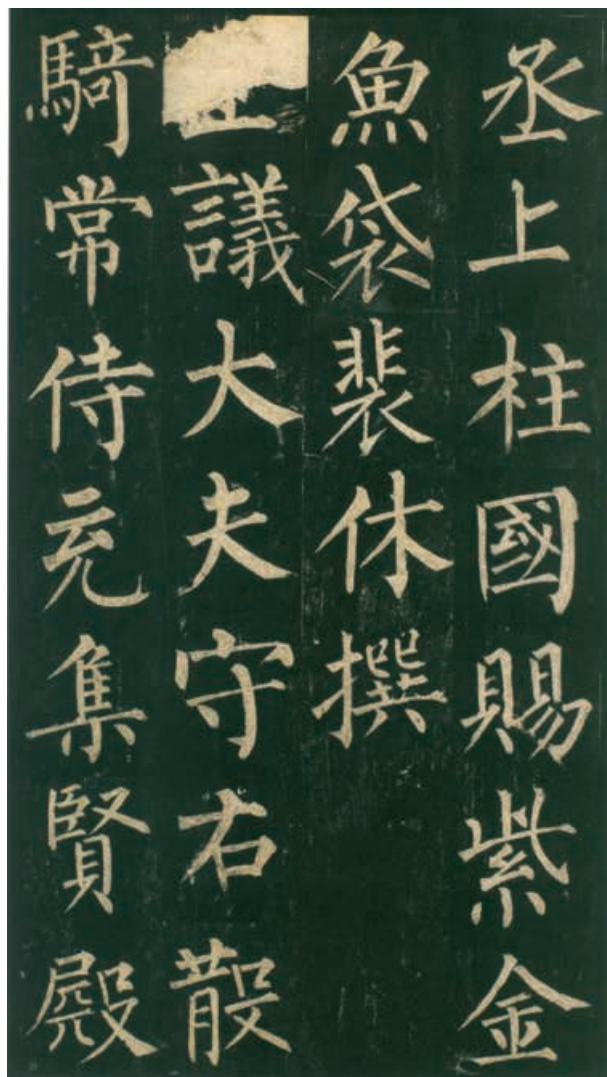 丞上柱國賜紫金
魚袋裴休撰
議大夫守右散
騎常侍充集賢殿